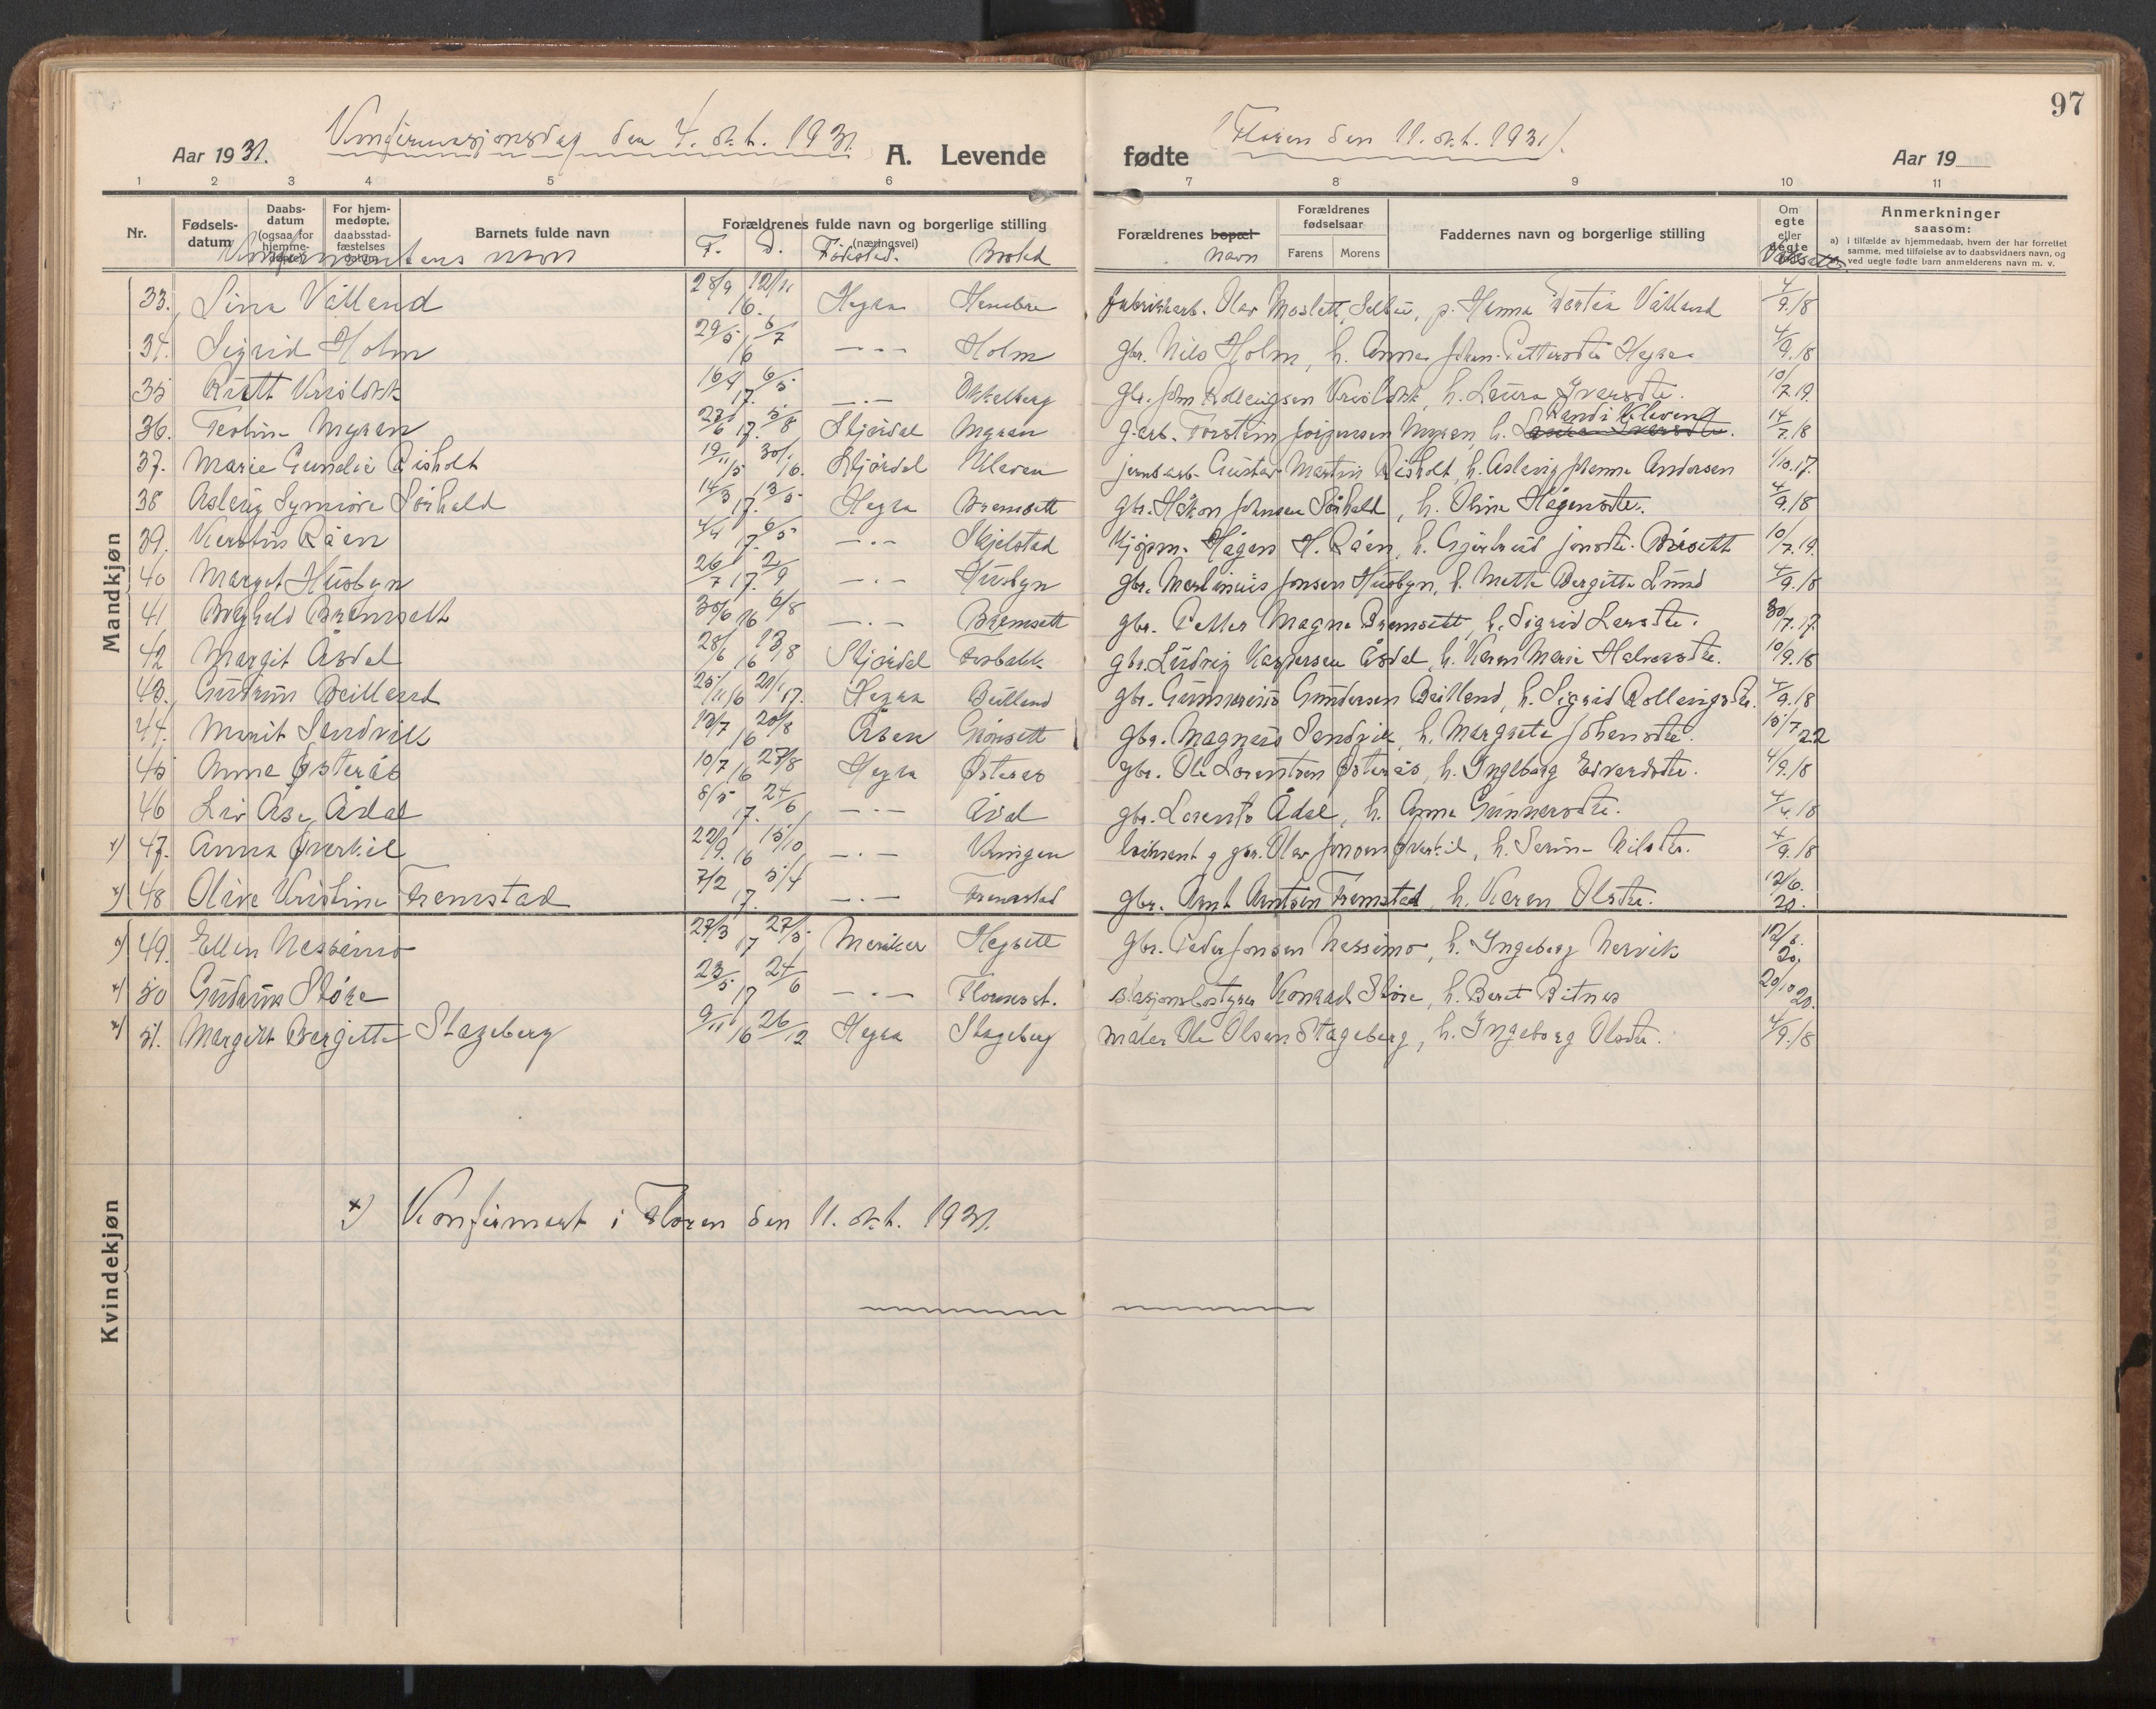 97
Konfirmasjonsdag den 4. okt. 1931.
(Floren den 11. okt. 1931).
Aar 1931. A. Levende fødte Aar 19
1 2 3 4 5 6 7 8 9 10 11
Nr. Fødsels-datum Daabs-datum (ogsaa for hjemme-døpte) For hjem-medøpte, daabsstad-fæstelses datum Barnets fulde navn Forældrenes fulde navn og borgerlige stilling (næringsvei) Forældrenes bopæl Forældrenes fødselsaar Farens Morens Faddernes navn og borgerlige stilling Om egte eller uegte Anmerkninger saasom:
a) i tilfælde av hjemmedaab, hvem der har forrettet samme, med tilføielse av to daabsvidners navn, og ved uegte fødte barn anmelderens navn m. v.
Konfirmantens navn F. D. Fødested. Bosted Navn
Mandkjøn
33. Lina Våtland 28/9 12/11 16. Hegra fabrikkarb. Olav Moslett, Selbu, p. Hanna Våtland 4/9.18
34. Sigrid Holm 29/5 6/7 16 —·— Holm gbr. Nils Holm, h. Anna Johan-Pettersdtr Hegra 4/9.18
35 16/4 6/5 17. —·— Okkelberg h. Laura Iversdtr. 10/7.19.
36. Myran 17. 5/8 Stjørdal Myran g.arb. Torstein Jørgensen Myran, h. Randi Kleven 14/7.18
37. Marie Gundie Risholt 19/11 15 30/1 16. Stjørdal Kleven jernb.arb. Gustav Martin Risholt, h. Aslaug Johanna Andersen 1/10.17.
38 Aslaug Synnøve Sørhald 14/3 13/5 17. Hegra Bremsett gbr. Håkon Johnsen Sørhald, h. Oline Hågensdtr. 4/9.18
39. Kerstin Råen 4/4 6/5 17. —·— Skjelstad kjøpm. Hågen H. Råen, h. Gjertrud Jonsdtr. 10/7.19.
40 Margot Husbyn 26/7 2/9 17 —·— Husbyn gbr. Martinius Jonsen Husbyn, h. Mette Bergitte Lund 4/9.18
41 Borghild Bremsett 30/6 6/8 16 —·— Bremsett gbr. Petter Magne Bremsett, h. Sigrid Larsdtr. 30/7.17.
42 Margit Åsdal 28/6 13/8 16 Stjørdal gbr. Ludvig Kaspersen Åsdal, h. Karen Marie Halvorsdtr. 10/9.18
43. Gudrun Beitland 25/11 16 21/1 17. Hegra Beitland gbr. Gunnerius Gundersen Beitland, h. Sigrid Rollaugsdtr. 4/9.18
44. Marit Sandvik 20/8 16 Åsen Grønsett gbr. Magnus Sandvik, h. Margrete Johansdtr. 15/7 22
45 Anna Østerås 10/7 27/8 16 Hegra Østerås gbr. Ole Lorentsen Østerås, h. Ingeborg Edvardsdtr. 4/9.18
46 Liv Åse Ådal 8/5 24/6 17. —·— Ådal gbr. Lorents Ådal, h. Anna Gunnersdtr. 18
x) 47. Anna Øverkil 22/9. 15/10 16 —·— Kringen gbr. Olav Jonsen Øverkil, h. Serine Nilsdtr. 4/9.18
x) 48 Olive Kristine Fremstad 7/2 5/4 17. —·— Fremstad gbr. Arnt Arntsen Fremstad, h. Karen Olsdtr. 12/6. 20.
x) 49. Ellen Nessimo 27/3 27/5 17 Meraker Hegsett gbr. Peder Jonsen Nessimo, h. Ingeborg Nervik 20.
x) 50 Gudrun Støre 23/5 24/6 17 —·— Flornes st. stasjonsbestyrer Konrad Støre, h. Beret Bitnes 20/10 20.
x) 51. Margit Bergitte Stageberg 9/11 16 26/12 Hegra Stageberg maler Ole Olsen Stageberg, h. Ingeborg Olsdtr. 4/9.18
x) Konfirmert i Floren den 11. okt. 1931.
Kvindekjøn